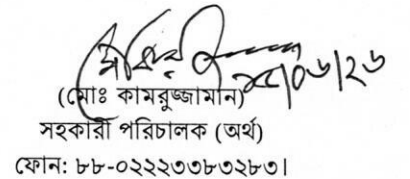 ২৫/০৬/২৬
(মোঃ কামরুজ্জামান)
সহকারী পরিচালক (অর্থ)
ফোন: ৮৮-০২২২৩৩৮৩২৮৩।